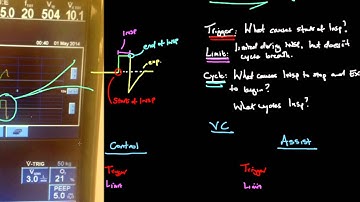 5.0 20 504 10.1
00:40 01 May 2014
Insp
end of Insp
exp.
Start of Insp
Trigger: What causes start of Insp?
Limit: limited during Insp, but doesn't
cycle breath.
Cycle: What causes Insp to stop and Exp
to begin?
What cycles Insp?
VC
Control
Assist
Trigger
Limit
Trigger
Limit
V-TRIG
50 kg
3.0
O₂
21
%
PEEP
5.0